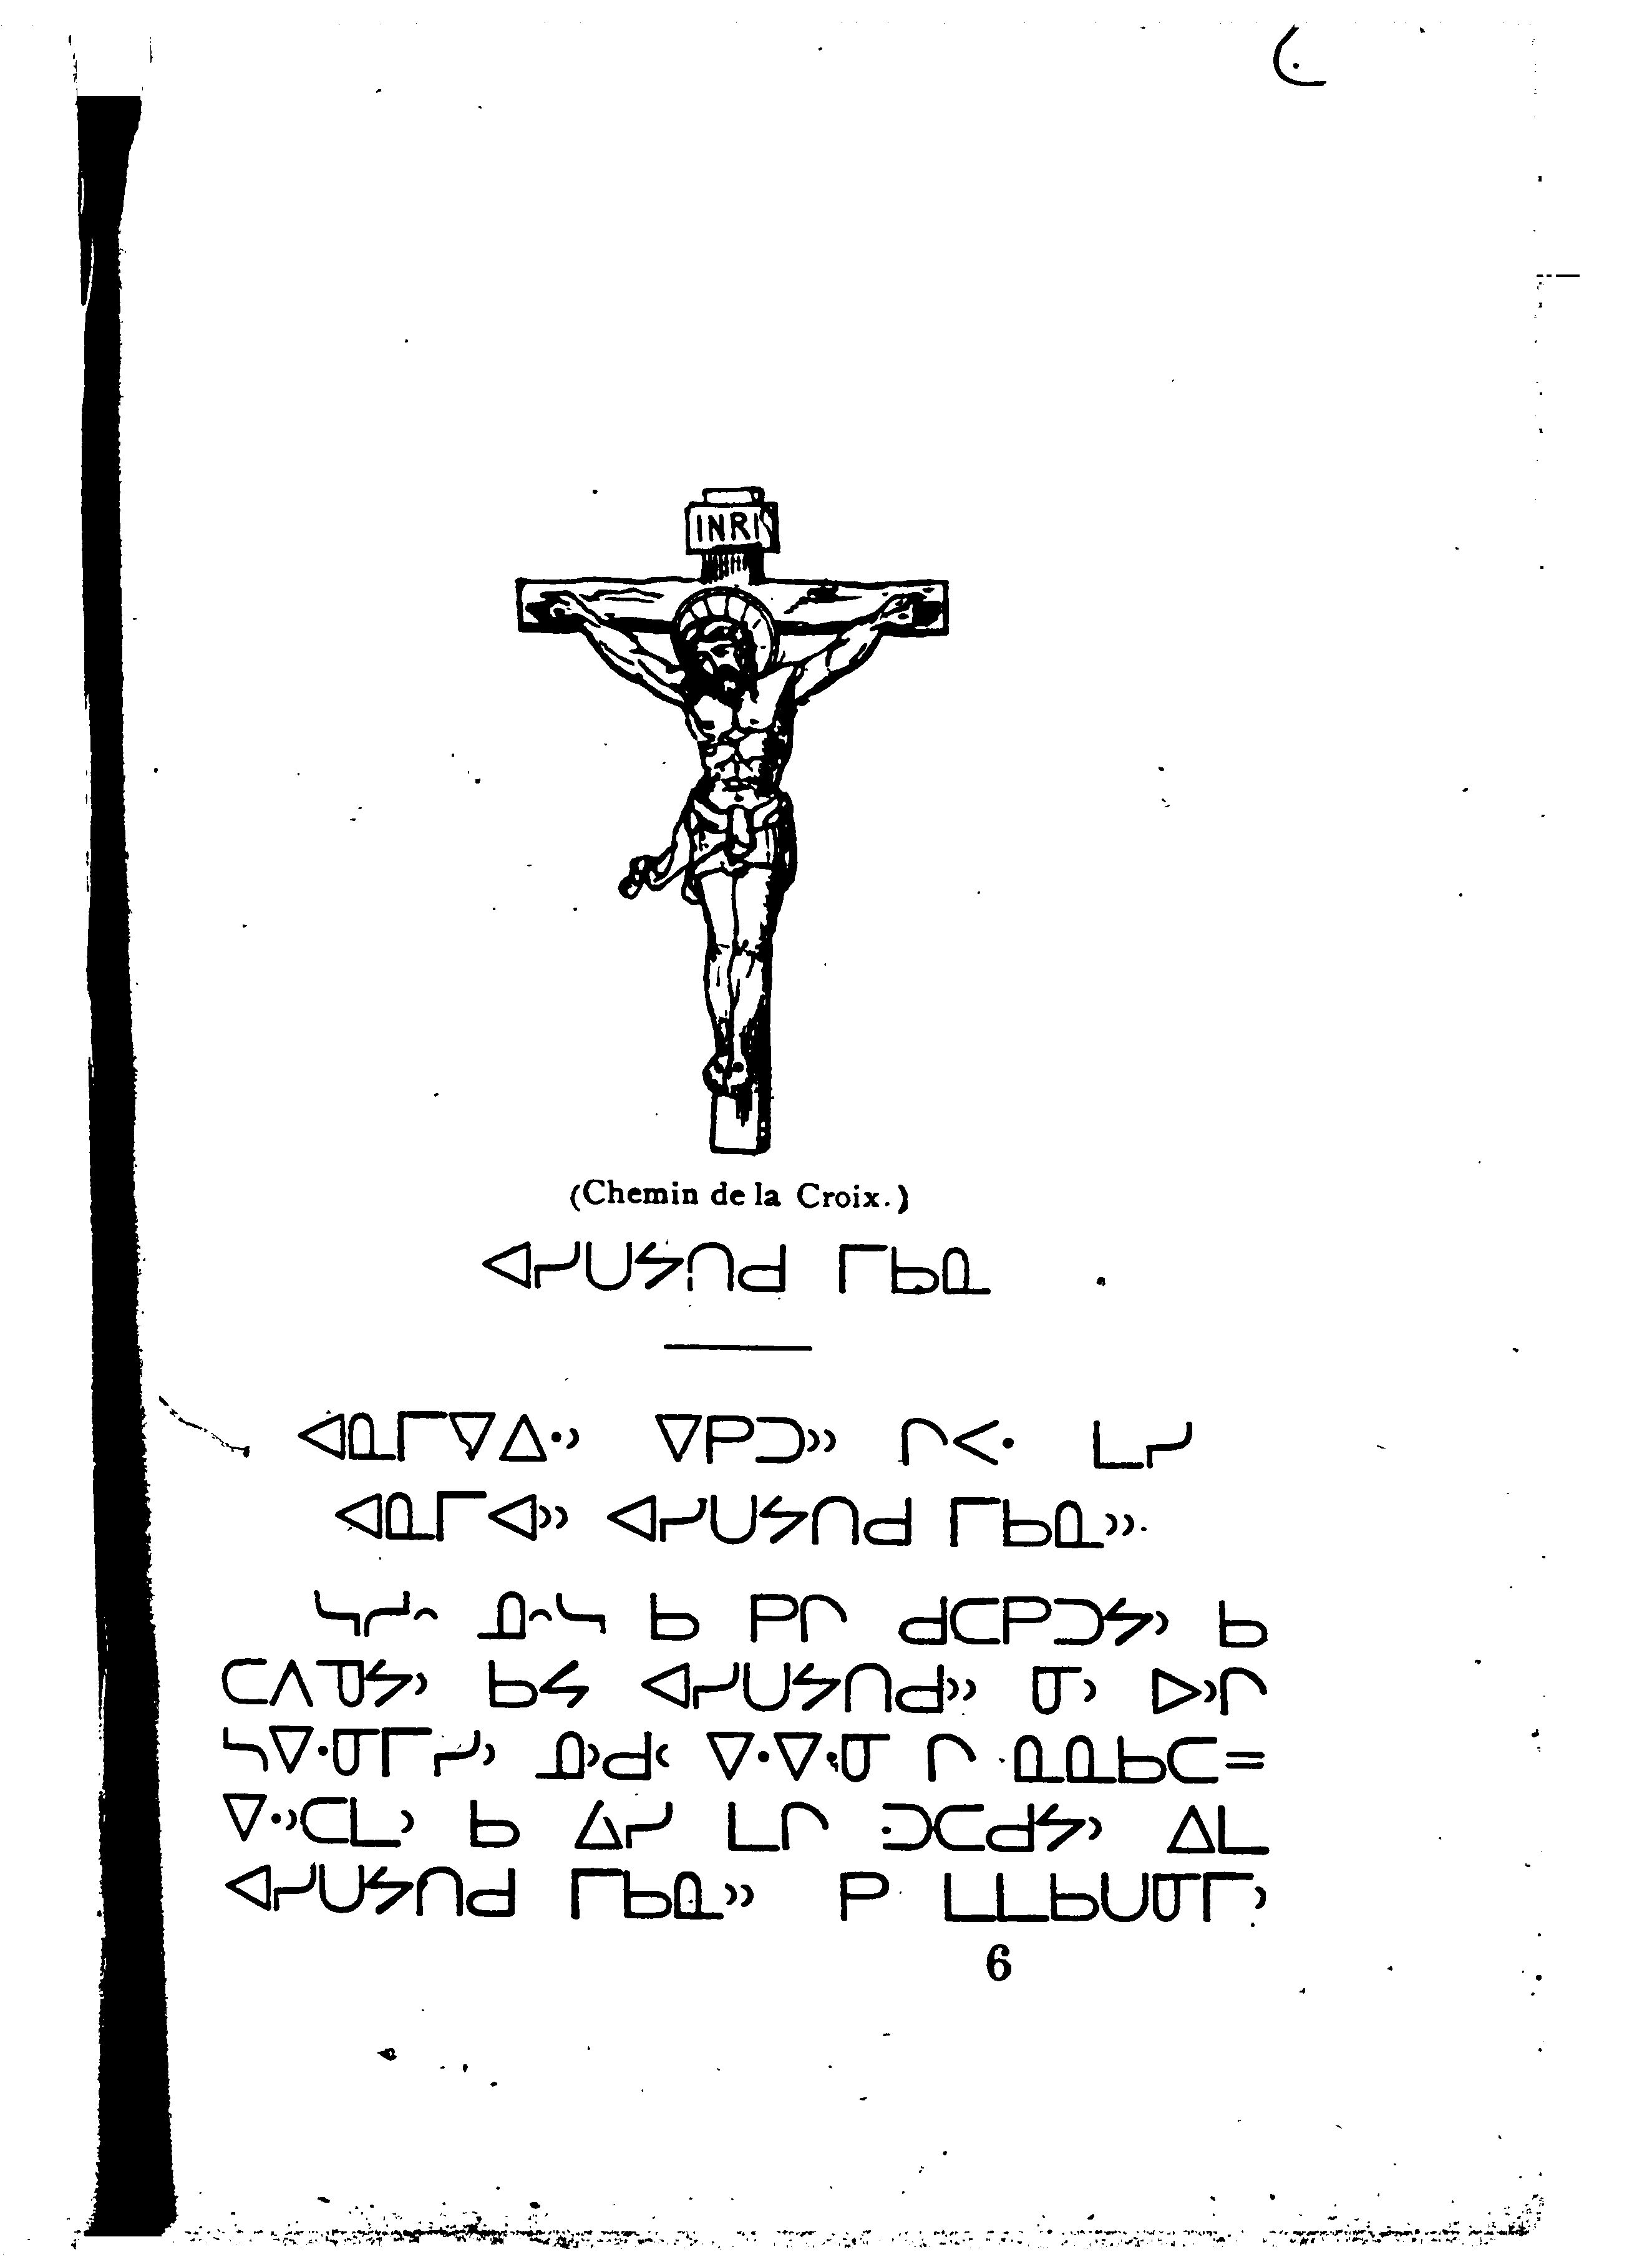 INRI
(Chemin de la Croix.)
ᐊᓯᑌᔭᑎᑯ ᒥᑲᓇ
ᐊᓇᒥᐁᐃᐧᐣ ᐁᑭᑐᐣᐣ ᒋᐸᐧ ᒪᓯ
ᐊᓇᒥᐊᐣᐣ ᐊᓯᑌᔭᑎᑯ ᒥᑲᓇᐣᐣ.
ᓴᓱᐢ ᓅᐢᓴ ᑲ ᑭᒋ ᑯᑕᑭᑐᔭᐣ ᑲ
ᑕᐱᓀᔭᐣ ᑲᔦ ᐊᓯᑌᔭᑎᑯᐣᐣ ᓂᐣ ᐅᐣᒋ
ᓴᐁᐧᓂᒥᓯᐣ ᓄᐣᑯᑦ ᐁᐧᐁᐧᓂ ᒋ ᓇᓇᑲᑕ=
ᐁᐧᐣᑕᒪᐣ ᑲ ᐃᓯ ᒪᒋ ᑐᑕᑯᔭᐣ ᐃᒪ
ᐊᓯᑌᔭᑎᑯ ᒥᑲᓇᐣᐣ ᑭ ᒪᒪᑲᑌᓂᒥᐣ
6